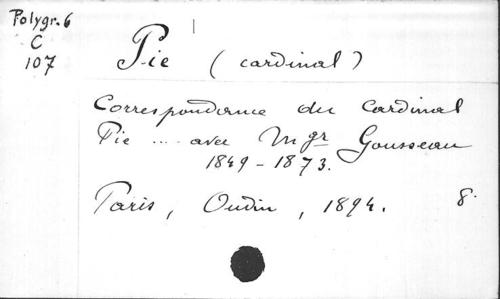 Polygr. 6
C
107
Pie (cardinal)
Correspondance du Cardinal
Pie .... avec Mgr Gousseau
1849 - 1873.
Paris, Oudin, 1894. 8.